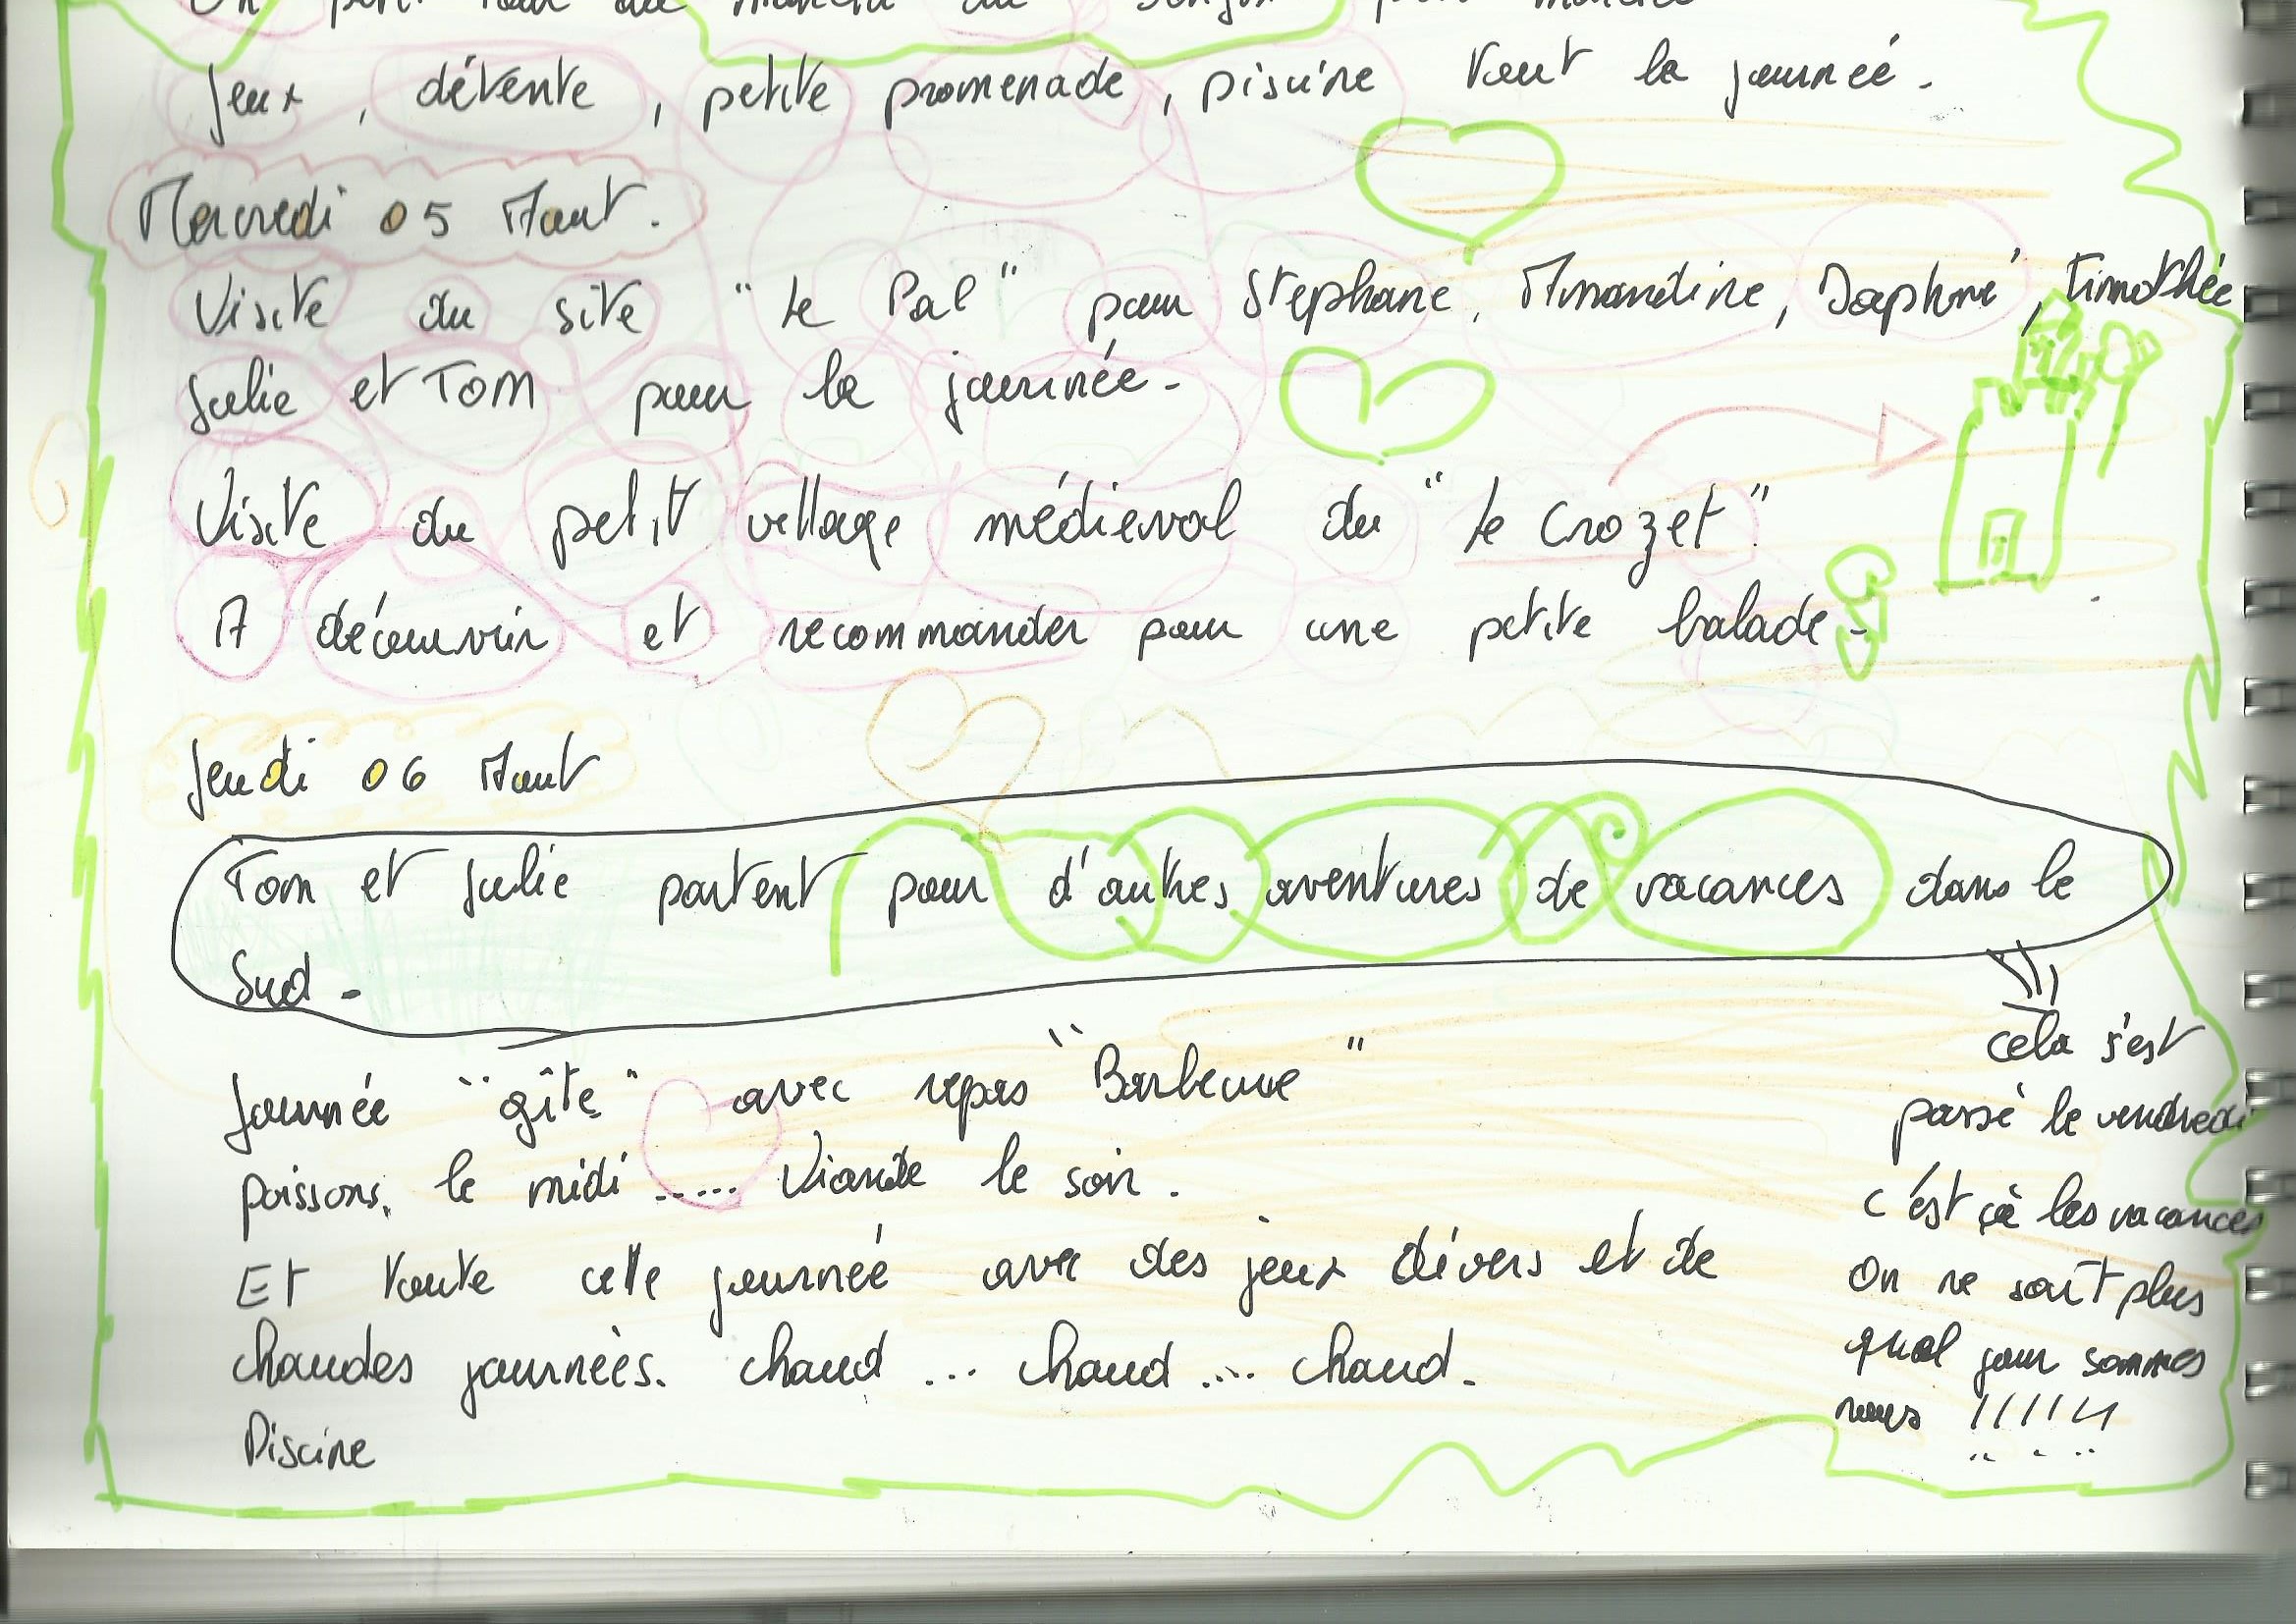 Un petit tour du marché du
jeux, détente, petite promenade, piscine tout la journeé.
Mercredi 05 Aout.
Visite du site "Le Pal" pour Stephane, Amandine, Daphné, Timothée
Julie et Tom pour la journée.
Visite du petit village médieval du "Le Crozet".
A découvrir et recommander pour une petite balade.
Jeudi 06 Aout
Tom et Julie partent pour d'autres aventures de vacances dans le
Sud.
Journée "gîte" avec repas "Barbecue"
poissons, le midi ...... Viande le soir.
Et toute cette journeé avec des jeux divers et de
chaudes journeès. chaud ... chaud .... chaud.
Piscine
cela s'est
passé le vendredi
c'est çà les vacances
On ne sait plus
quel jour sommes
nous !!!!!!